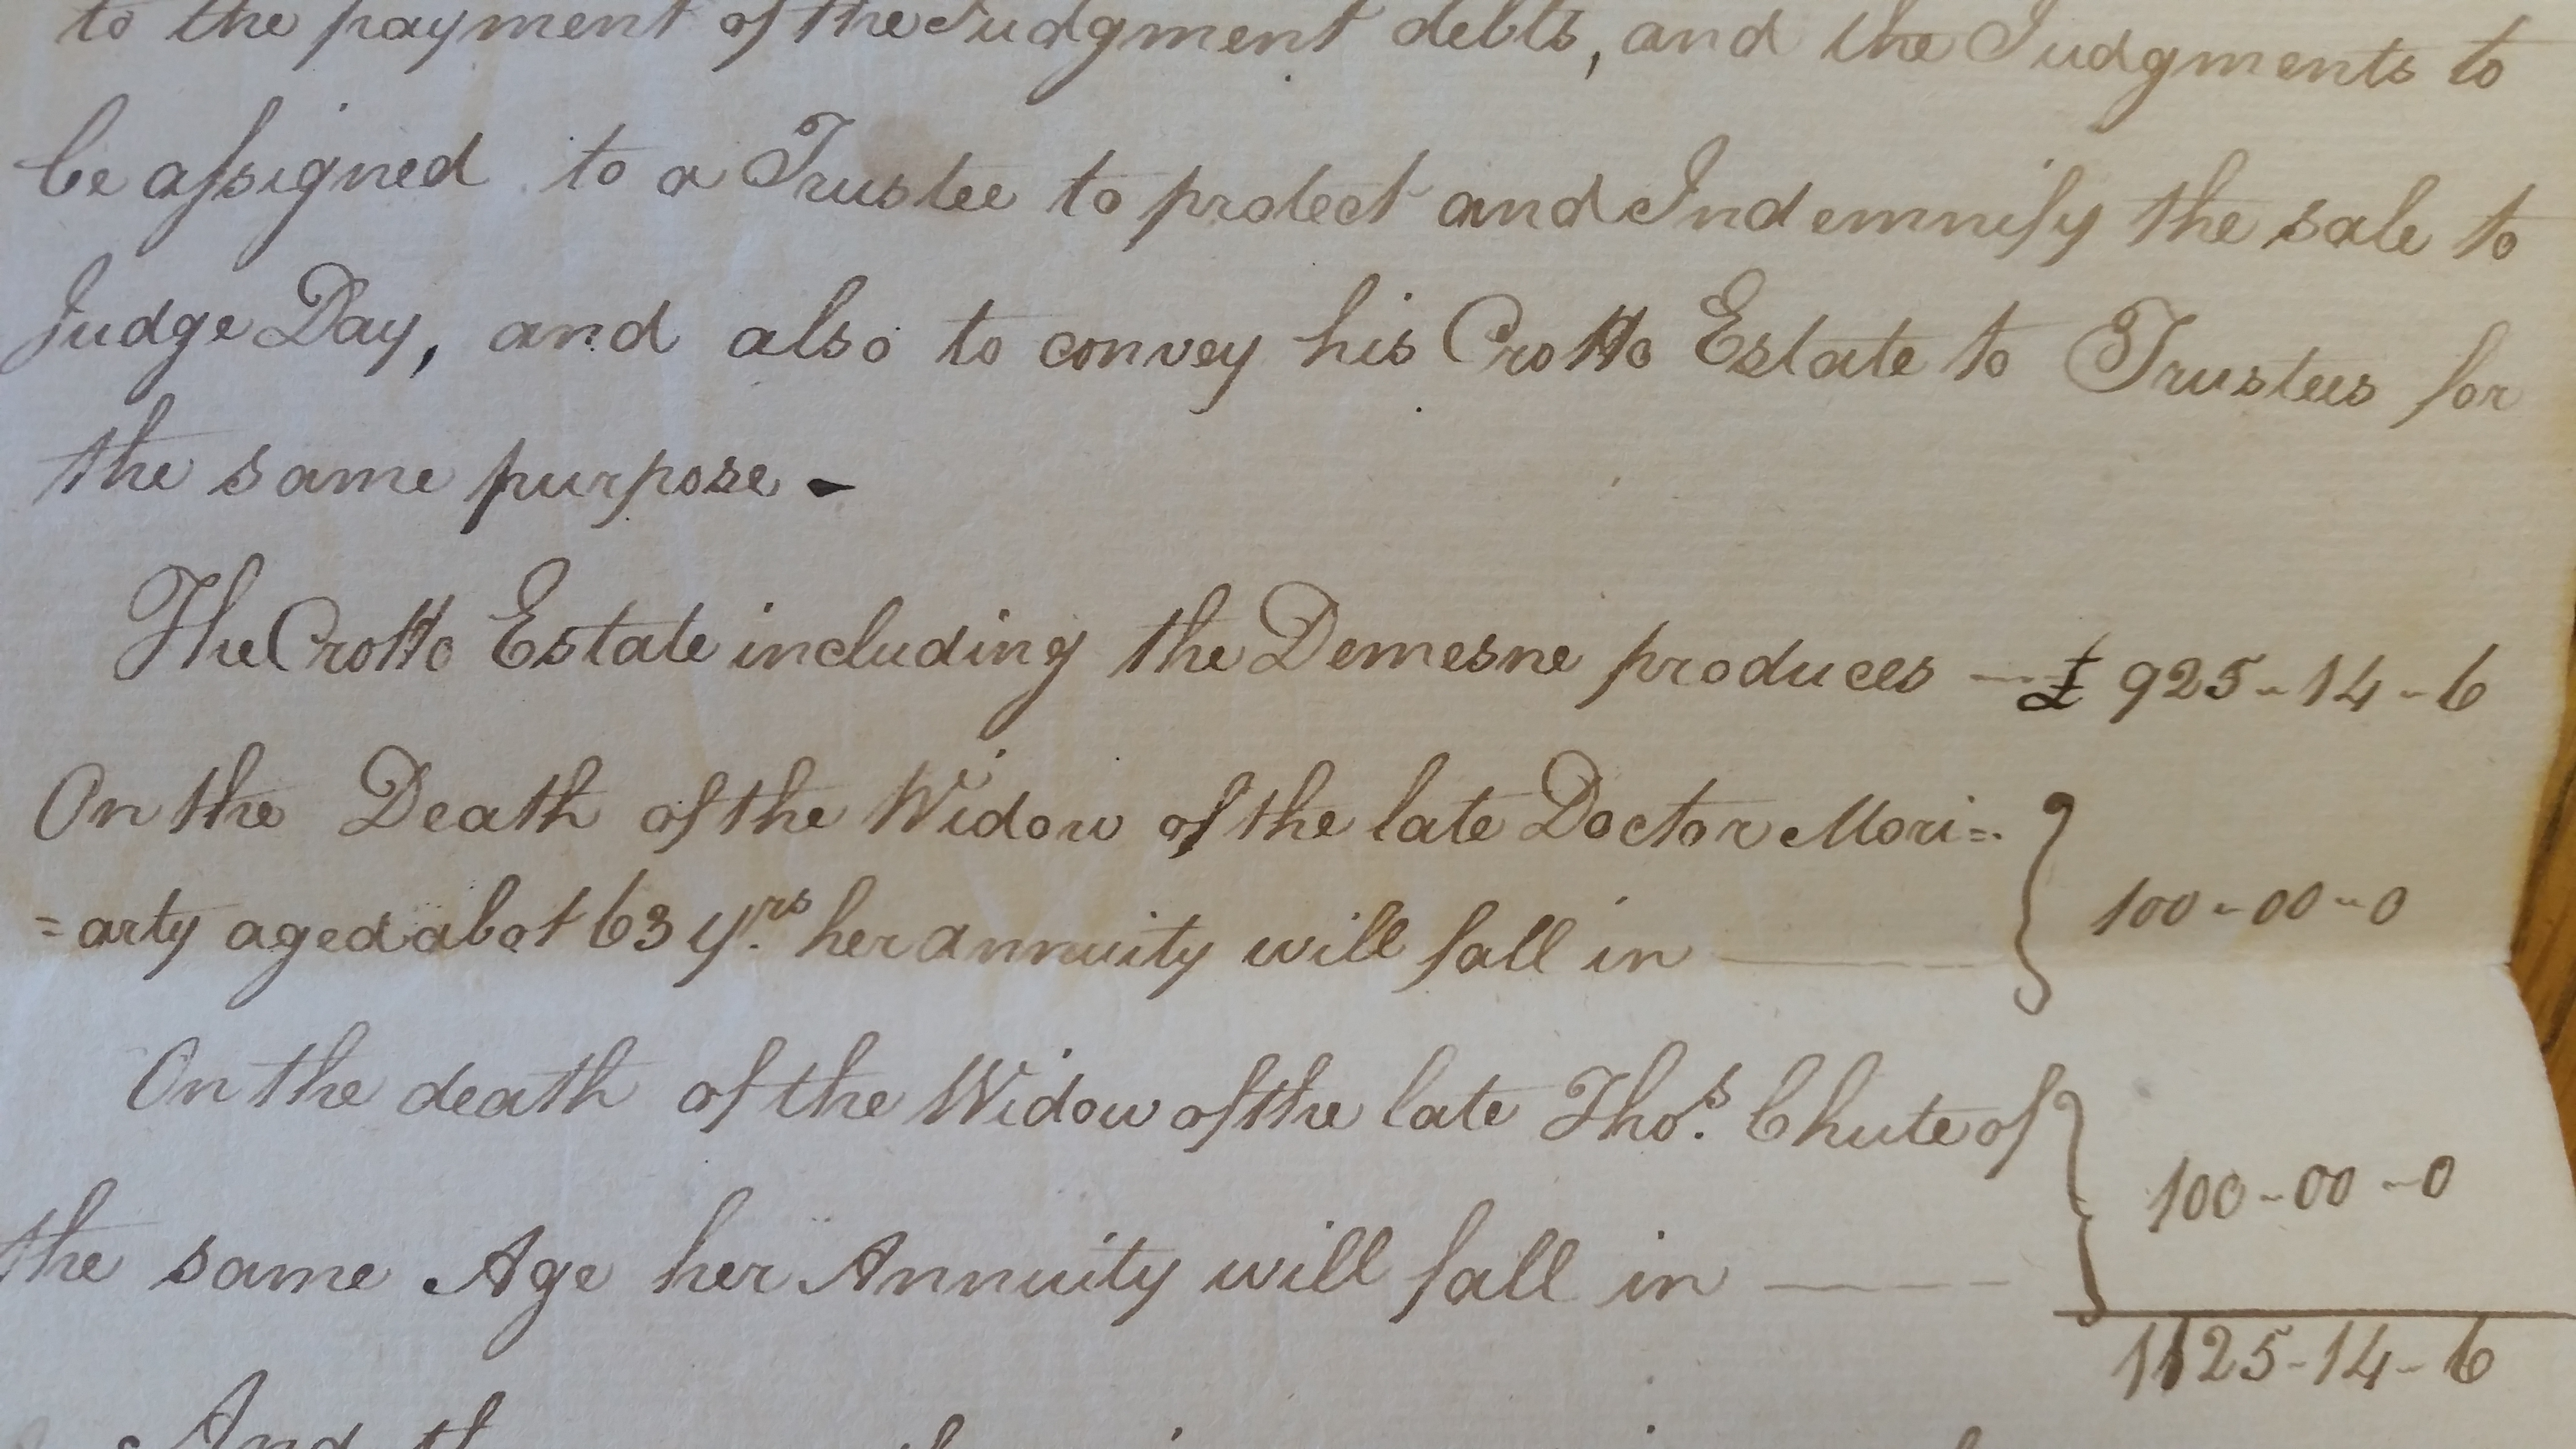 to the payment of the Judgment debts, and the Judgments to
be assigned to a Trustee to protect and Indemnify the sale to
Judge Day, and also to convey his Crotto Estate to Trustees for
the same purpose -
The Crotto Estate including the Demesne produces — £ 925-14-6
On the Death of the Widow of the late Doctor Mori=
=arty aged abot 63 yrs her annuity will fall in — 100-00-0
On the death of the Widow of the late Thos. Chute of
the same Age her Annuity will fall in — 100-00-0
1125-14-6
And